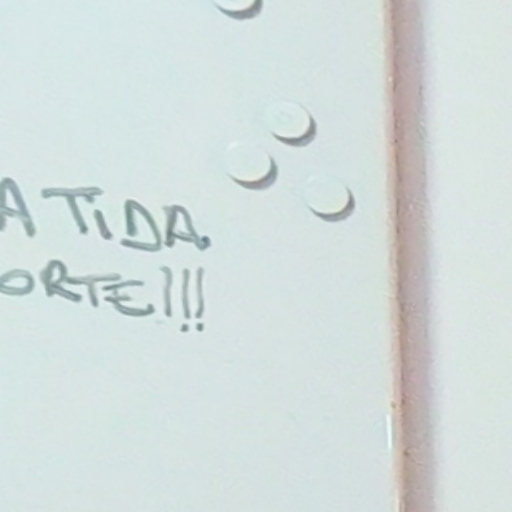 A TIDA.
ORTE!!!